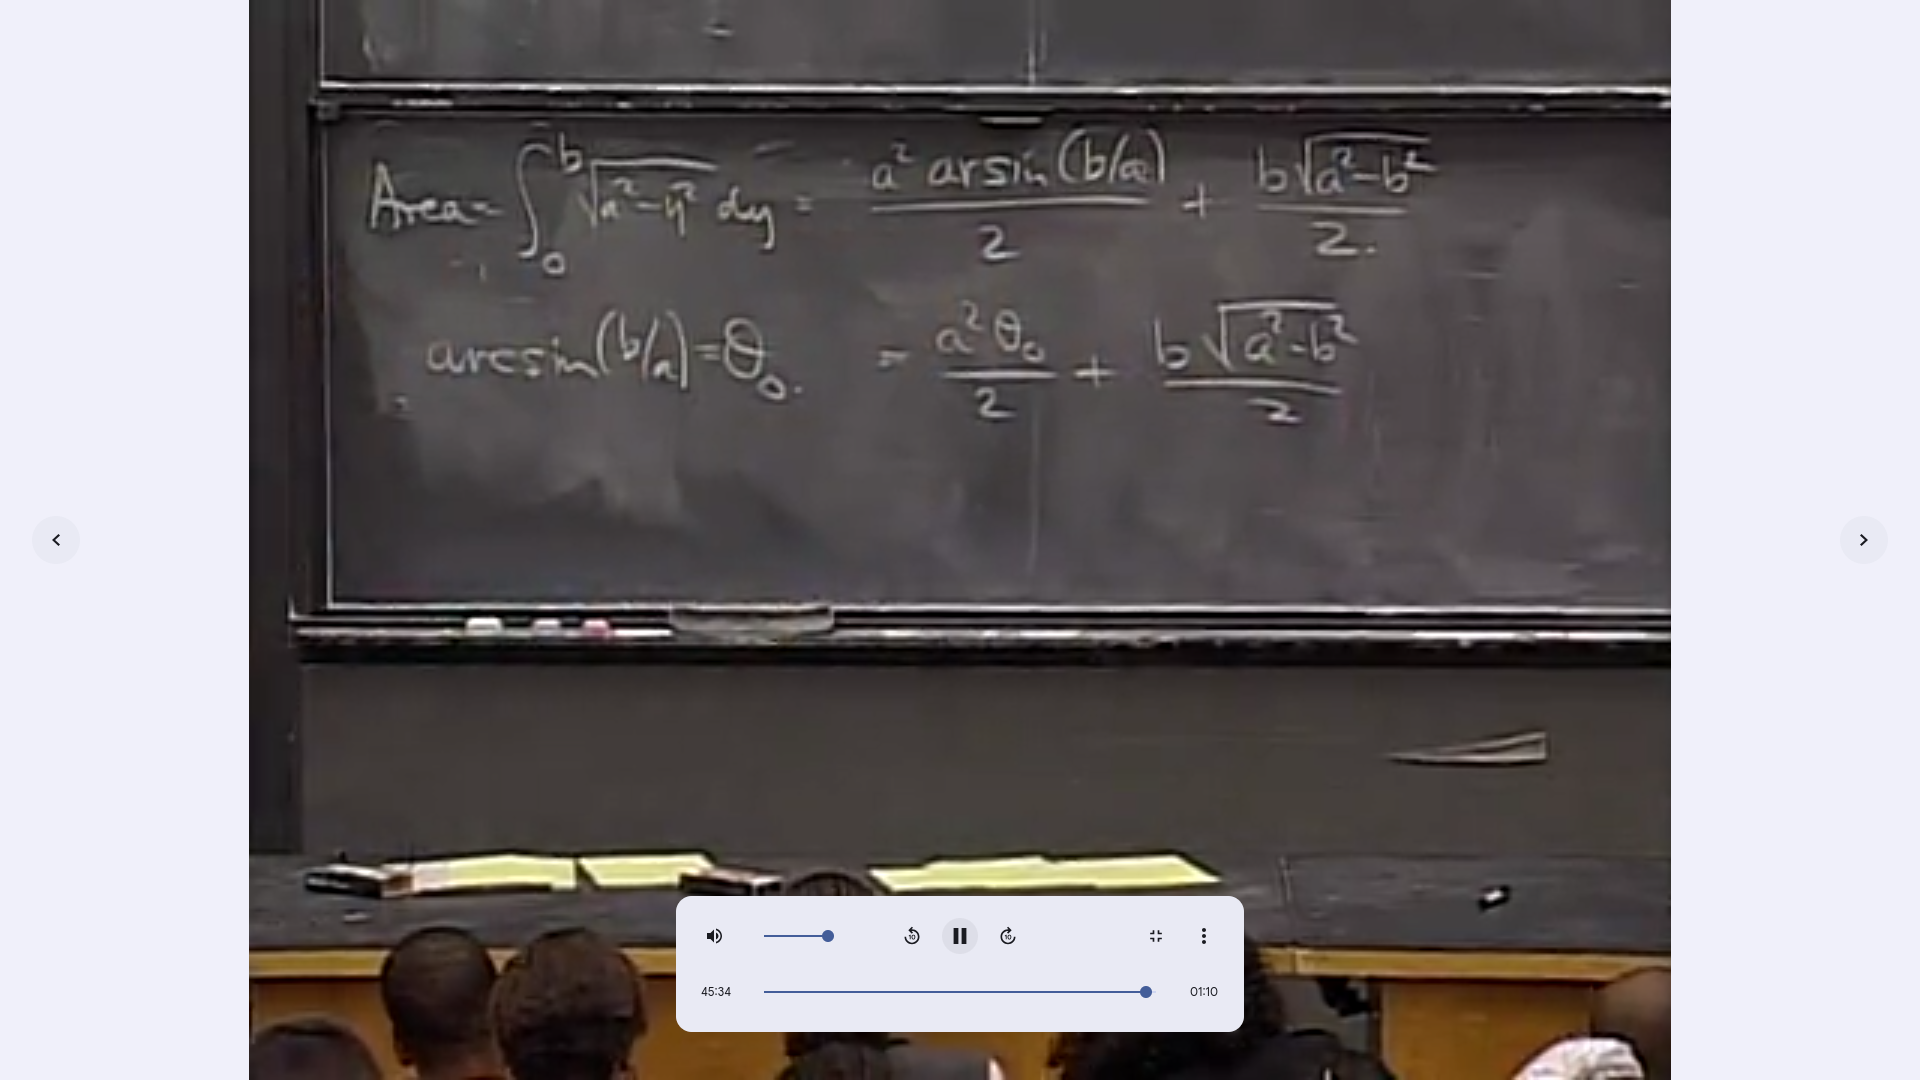 Area = ∫₀ᵇ √(a²-y²) dy = a² arsin(b/a)/2 + b√(a²-b²)/2.
arcsin(b/a) = θ₀. = a²θ₀/2 + b√(a²-b²)/2
10 10
45:34 01:10